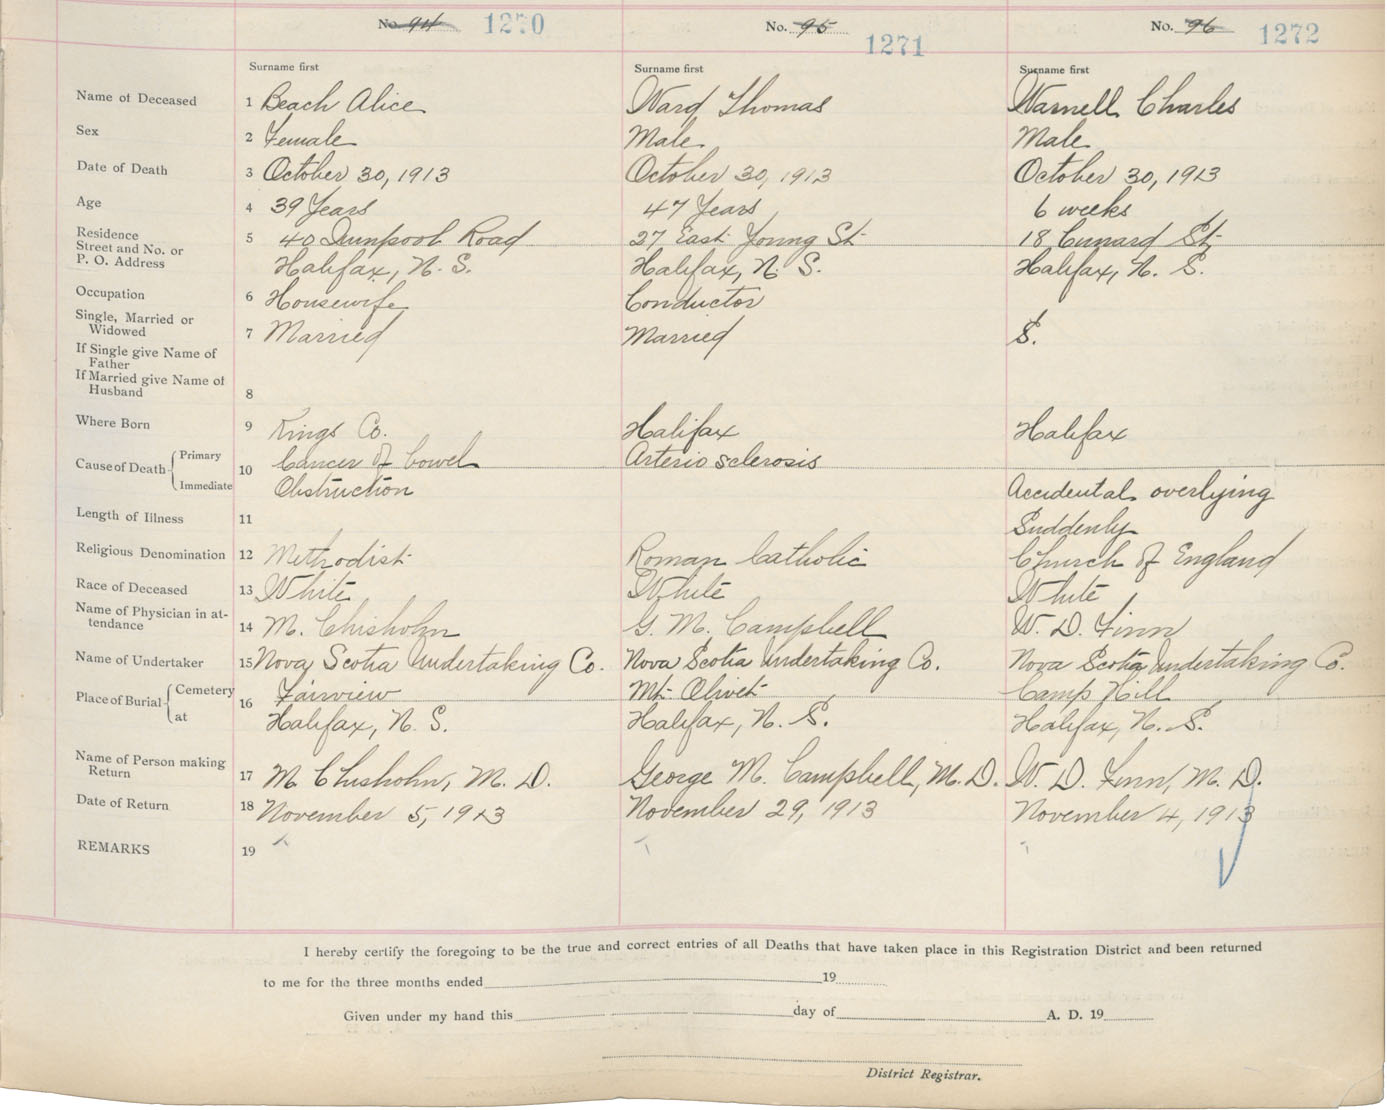 No. 94 1270 No. 95 1271 No. 96 1272
Surname first Surname first Surname first
Name of Deceased 1 Beach Alice Ward Thomas Warnell Charles
Sex 2 Female Male Male
Date of Death 3 October 30, 1913 October 30, 1913 October 30, 1913
Age 4 39 Years 47 Years 6 weeks
Residence
Street and No. or 5 40 Road 27 East Young St. 18 Cunard St.
P. O. Address Halifax, N. S. Halifax, N. S. Halifax, N. S.
Occupation 6 Housewife Conductor
Single, Married or
Widowed 7 Married Married S.
If Single give Name of
Father
If Married give Name of
Husband 8
Where Born 9 Kings Co. Halifax Halifax
Cause of Death Primary 10 Cancer of bowel Arterio sclerosis
Immediate Obstruction Accidental overlying
Length of Illness 11 Suddenly
Religious Denomination 12 Methodist Roman Catholic Church of England
Race of Deceased 13 White White White
Name of Physician in at-
tendance 14 M. Chisholm G. M. Campbell W. D. Finn
Name of Undertaker 15 Nova Scotia Undertaking Co. Nova Scotia Undertaking Co. Nova Scotia Undertaking Co.
Place of Burial Cemetery 16 Fairview Mt. Olivet Camp Hill
at Halifax, N. S. Halifax, N. S. Halifax, N. S.
Name of Person making
Return 17 M. Chisholm, M. D. George M. Campbell, M. D. W. D. Finn, M. D.
Date of Return 18 November 5, 1913 November 29, 1913 November 4, 1913
REMARKS 19
I hereby certify the foregoing to be the true and correct entries of all Deaths that have taken place in this Registration District and been returned
to me for the three months ended 19
Given under my hand this day of A. D. 19
District Registrar.